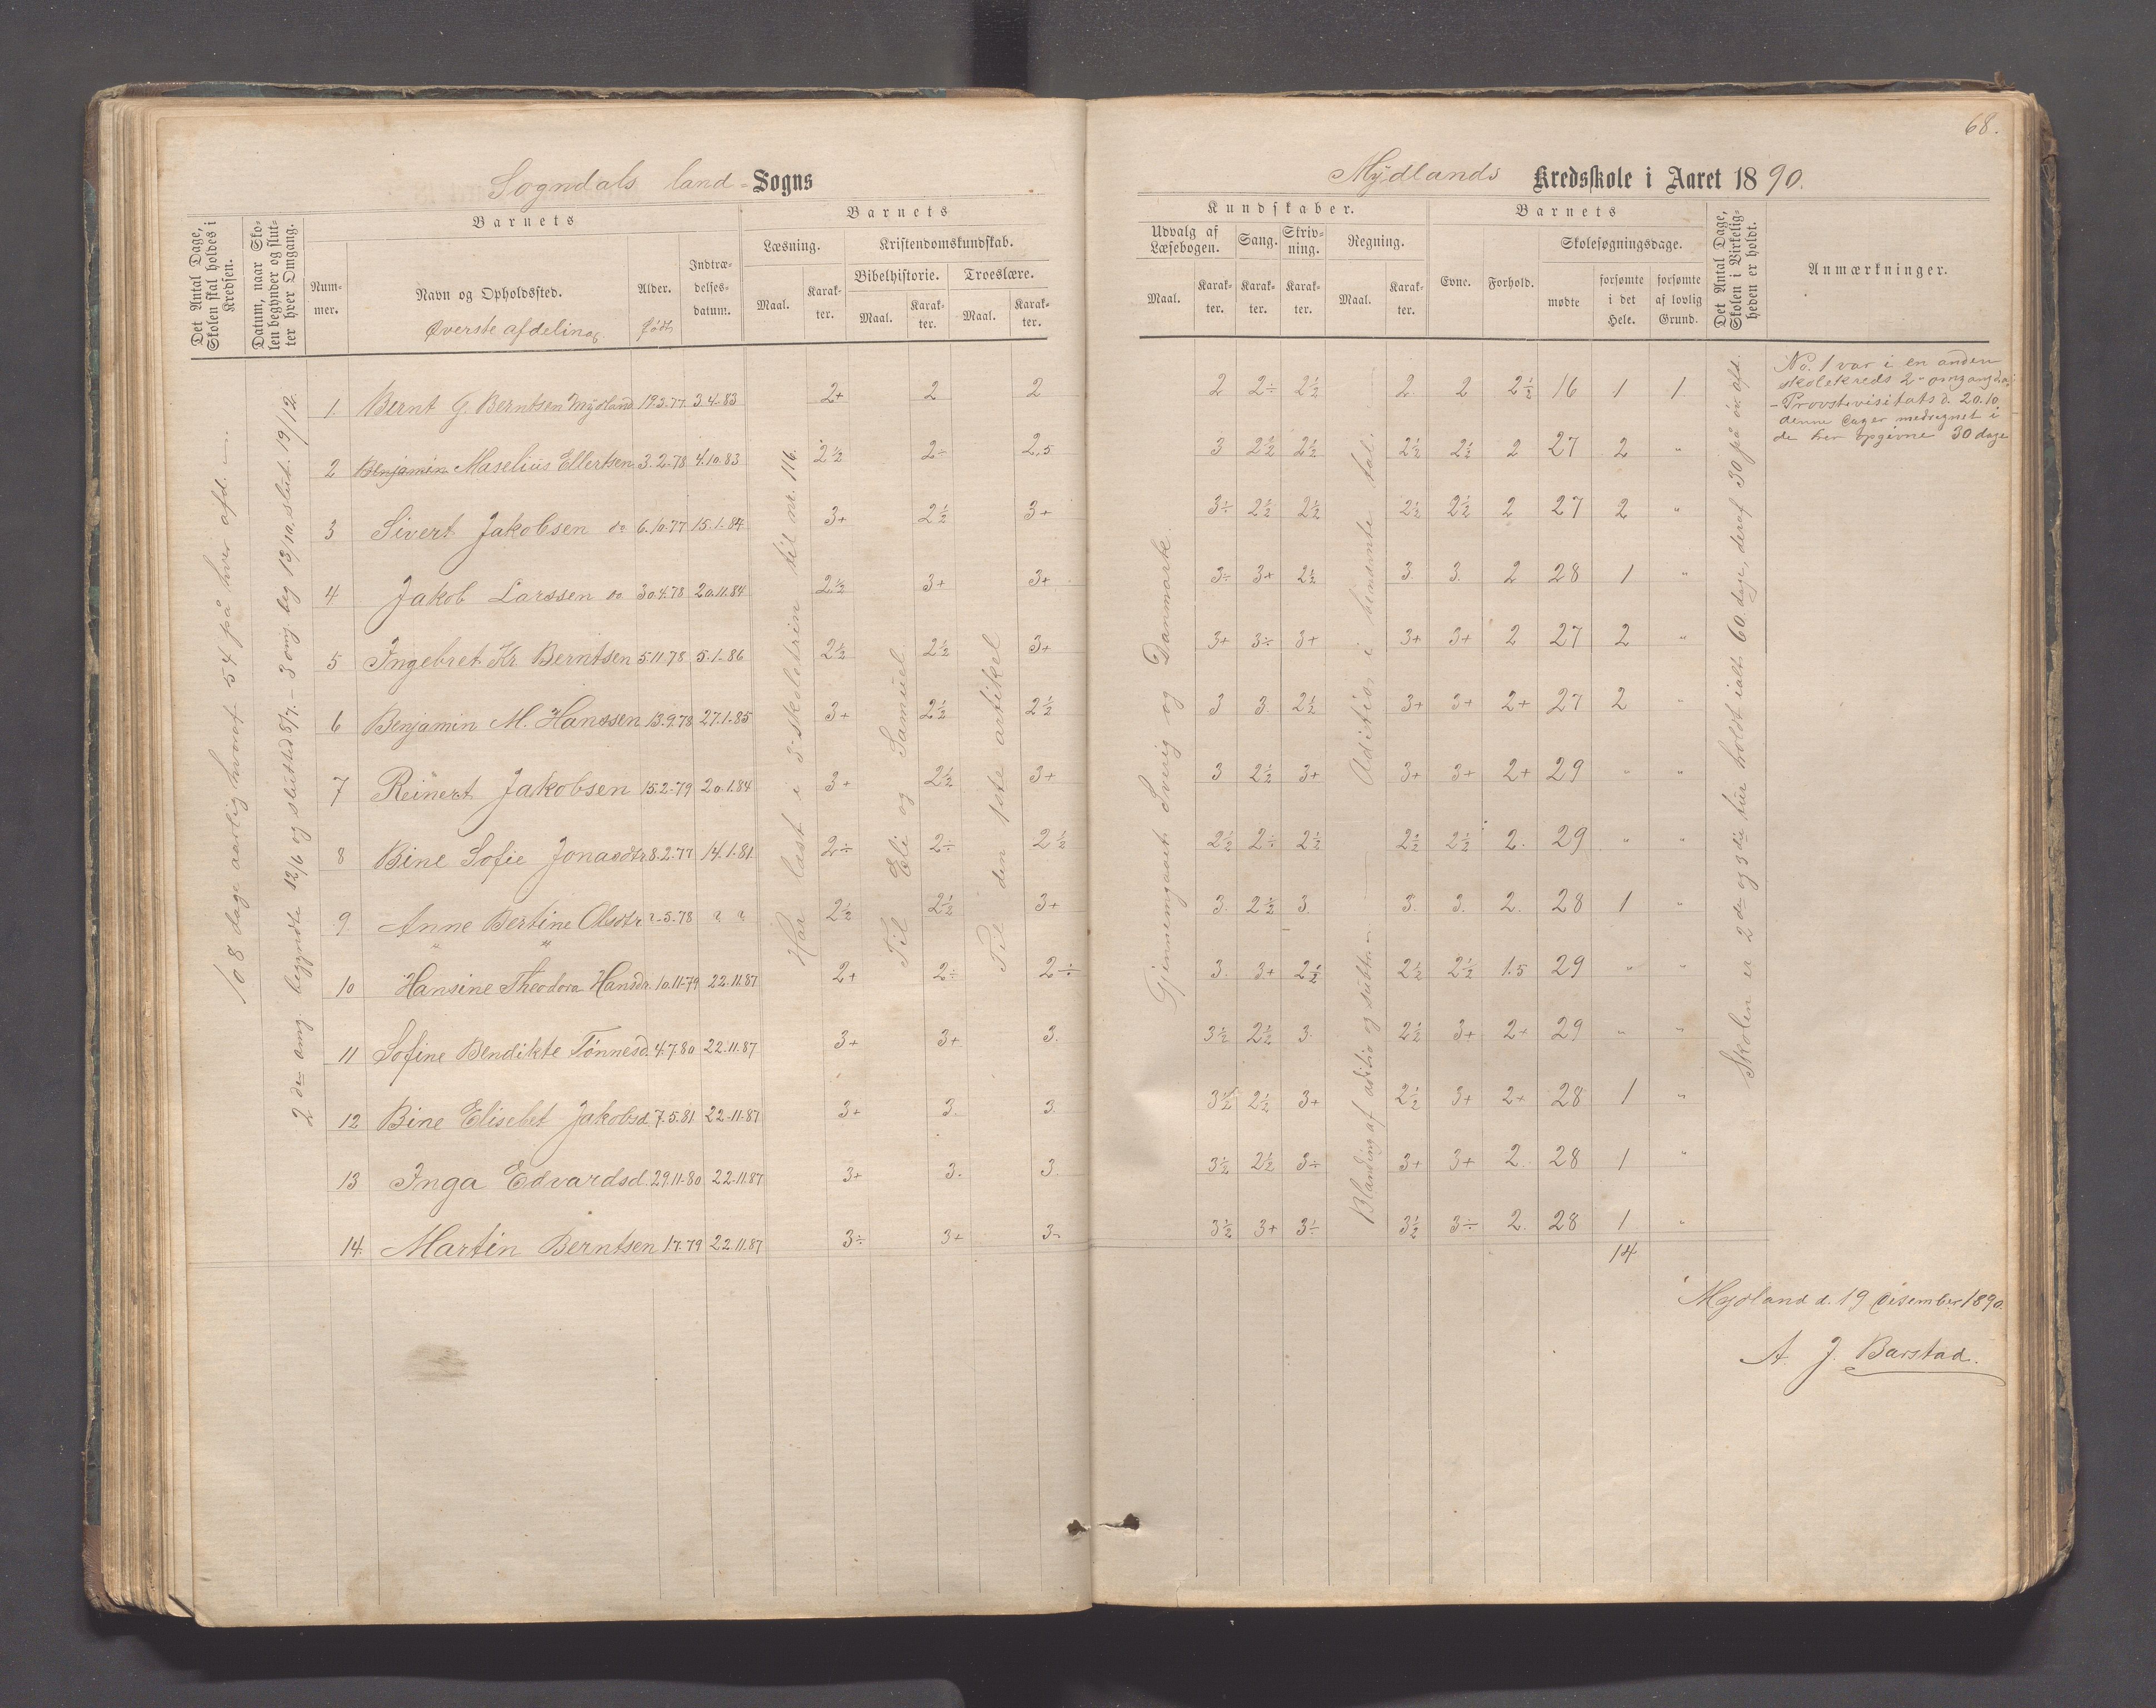 68.
Sogndals land - Sogns
Mydlands Kredsskole i Aaret 1890.
Det Antal Dage, Skolen skal holdes i Kredsen.
Datum, naar Skolen begynder og slutter hver Omgang.
Barnets
Nummer.
Navn og Opholdssted.
Øverste afdeling
Alder.
født
Indtrædelsesdatum.
Barnets
Læsning.
Maal.
Karakter.
Kristendomskundskab.
Bibelhistorie.
Maal.
Karakter.
Troeslære.
Maal.
Karakter.
Kundskaber.
Udvalg af Læsebogen.
Maal.
Karakter.
Sang.
Karakter.
Skrivning.
Karakter.
Regning.
Maal.
Karakter.
Barnets
Evne.
Forhold.
Skolesøgningsdage.
mødte
forsømte i det Hele.
forsømte af lovlig Grund.
Det Antal Dage, Skolen i Virkeligheden er holdt.
Anmærkninger.
108 dage aarlig hvoraf 54 på hver afd.
2den omg. begyndte 12/6 og slutted 5/7. – 3 omg. beg 13/10. slut. 19/12.
Har læst i 3. skoletrin til nr. 116.
Til Eli og Samuel
Til den 1ste artikel
Gjennemgaaet Sverig og Danmark.
Blanding af aditio og subtr.
Adition i benævnte tal.
Skolen er 2den og 3die tur holdt ialt 60 dage, deraf 30 på øv. afd.
1 Bernt G. Berntsen Mydland 19.3.77 3.4.83 2+ 2 2 2 2÷ 2½ 2 2 2½ 16 1 1
2 Benjamin Maselius Ellertsen 3.2.78 4.10.83 2½ 2÷ 2,5 3 2½ 2½ 2½ 2½ 2 27 2 "
3 Sivert Jakobsen do 6.10.77 15.1.84 3+ 2½ 3+ 3÷ 2½ 2½ 2½ 2½ 2 27 2 "
4 Jakob Larssen do. 30.4.78 20.11.84 2½ 3+ 3+ 3÷ 3+ 2½ 3. 3. 2 28 1 "
5 Ingebret Kr Berntsen 5.11.78 5.1.86 2½ 2½ 3+ 3+ 3÷ 3+ 3+ 3+ 2 27 2 "
6 Benjamin M. Hanssen 13.9.78 27.1.85 3+ 2½ 2½ 3 3. 2½ 3+ 3+ 2+ 27 2 "
7 Reinert Jakobsen 15.2.79 20.1.84 3+ 2½ 3+ 3 2½ 3+ 3+ 3+ 2+ 29 " "
8 Bine Sofie Jonasdtr 8.2.77 14.1.81 2÷ 2÷ 2½ 2½ 2÷ 2½ 2½ 2½ 2. 29 " "
9 Anne Bertine Olsdtr ?.5.78 ? ? 2½ 2½ 3+ 3. 2½ 3. 3. 3. 2. 28 1 "
" "
10 Hansine Theodora Hansdr. 10.11.79 22.11.87 2+ 2÷ 2÷ 3. 3+ 2½ 2½ 2½ 1.5 29 " "
11 Sofine Bendikte Tønnesd. 4.7.80 22.11.87 3+ 3+ 3. 3½ 2½ 3. 2½ 3+ 2+ 29 " "
12 Bine Elisebet Jakobsd. 7.5.81 22.11.87 3+ 3. 3 3½ 2½ 3+ 2½ 3+ 2+ 28 1 "
13 Inga Edvardsd. 29.11.80 22.11.87 3+ 3. 3. 3½ 2½ 3÷ 3+ 3+ 2. 28 1 "
14. Martin Berntsen 1.7.79 22.11.87 3÷ 3+ 3 3½ 3+ 3÷ 3½ 3÷ 2. 28 1 "
14
No. 1 var i en anden
skolekreds 2-omgang
– Provstevisitats d. 20.10
denne dager medregnet i
de her opgivne 30 dage
Mydland d. 19 Desember 1890.
A. J. Barstad.